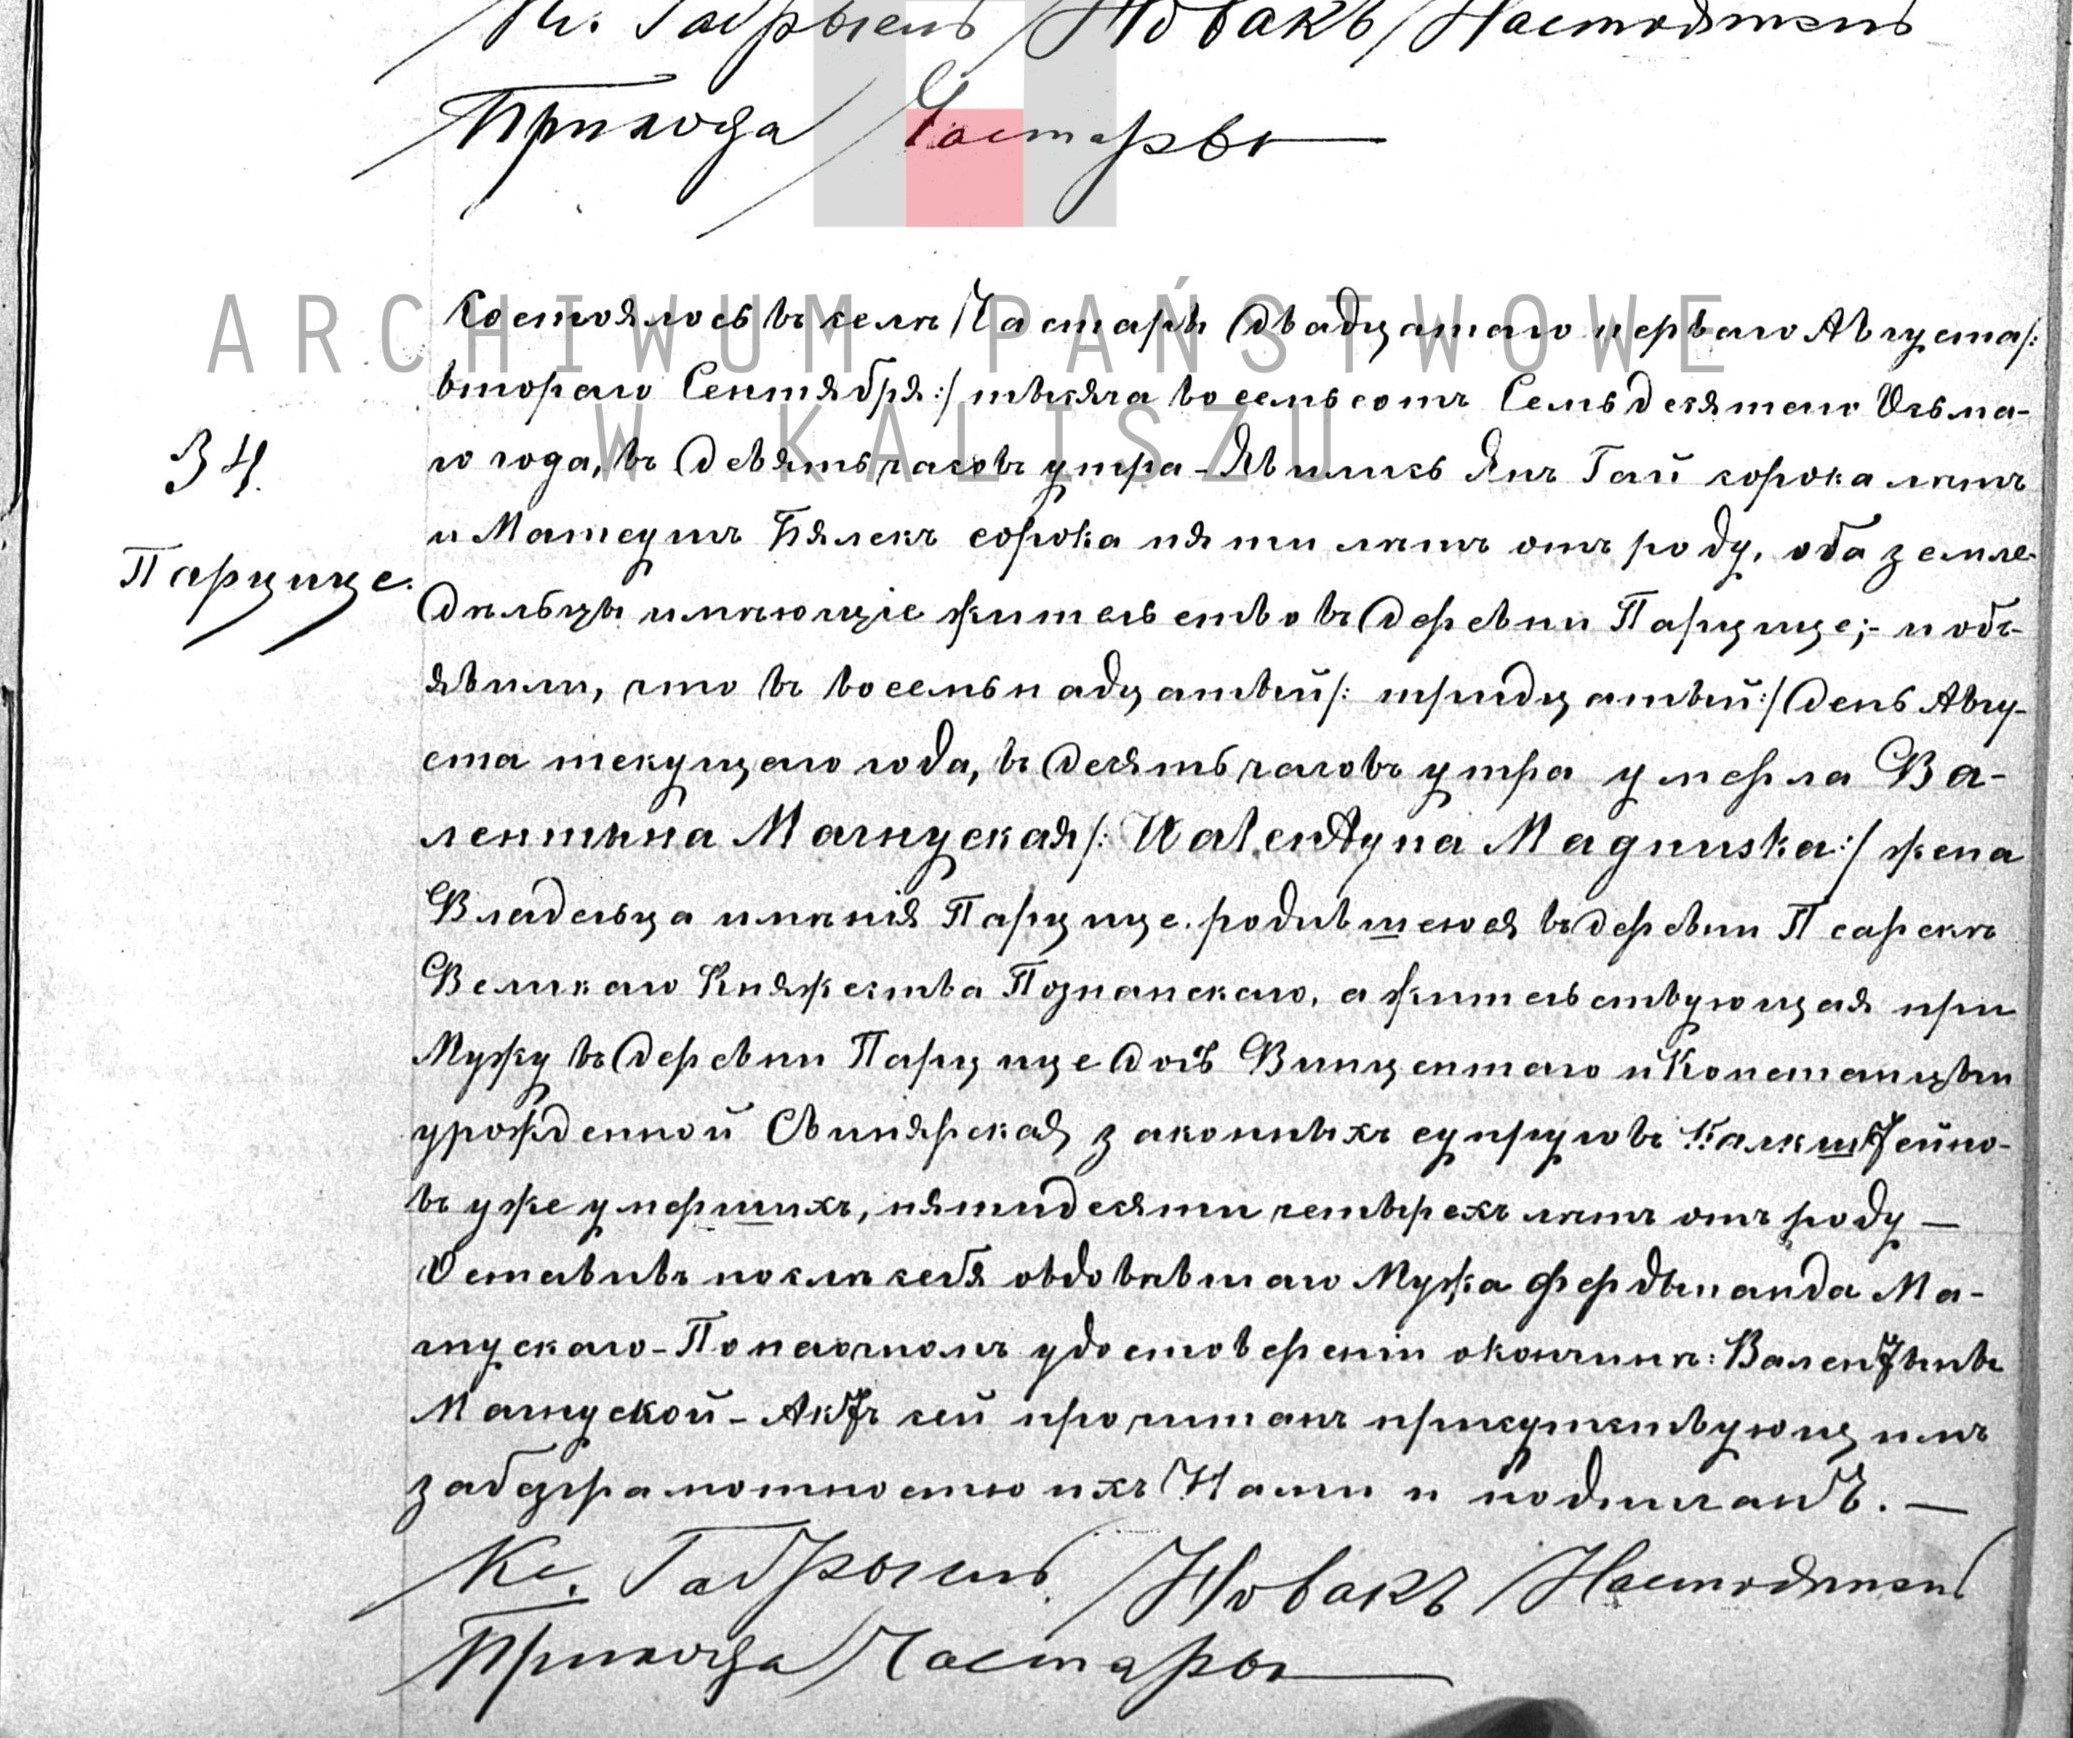 Кс. Габрыель Новакъ Настоятель
Прихода Частары
ARCHIWUM PAŃSTWOWE
W KALISZU
34.
Парцице.
Состоялось въ селѣ Частары двадцатаго перваго Августа/:
втораго Сентября:/ тысяча восемьсотъ Семьдесятаго Осьма-
го года, въ девять часовъ утра - Явились Янъ Гай сорока лѣтъ
и Матеушъ Бялекъ сорока пяти лѣтъ отъ роду, оба земле-
дѣльцы имѣющіе жительство въ деревни Парцице;- и объ-
явили, что въ восемьнадцатый/: тридцатый:/ день Авгу-
ста текущаго года, въ десять часовъ утра умерла Ва-
лентына Магнуская/: Walentyna Magnuska:/ жена
Владельца имѣнія Парцице. родившеюся въ деревни Псарскѣ
Великаго Княжества Познанскаго, а жительствующая при
Мужу въ деревни Парцице дочь Винцентаго и Констанцыи
урожденной Свинярская законныхъ супруговъ Калкштейно-
въ уже умершихъ, пятидесяти четырехъ лѣтъ отъ роду —
Оставивъ послѣ себя овдовѣвшаго Мужа Фердынанда Ма-
гнускаго - По наочномъ удостоверенiи о кончинѣ: Валентыны
Магнуской - Актъ сей прочитанъ присутствующимъ
за безграмотностью ихъ Нами и подписанъ. —
Кс. Габрыель Новакъ Настоятель
Прихода Частары